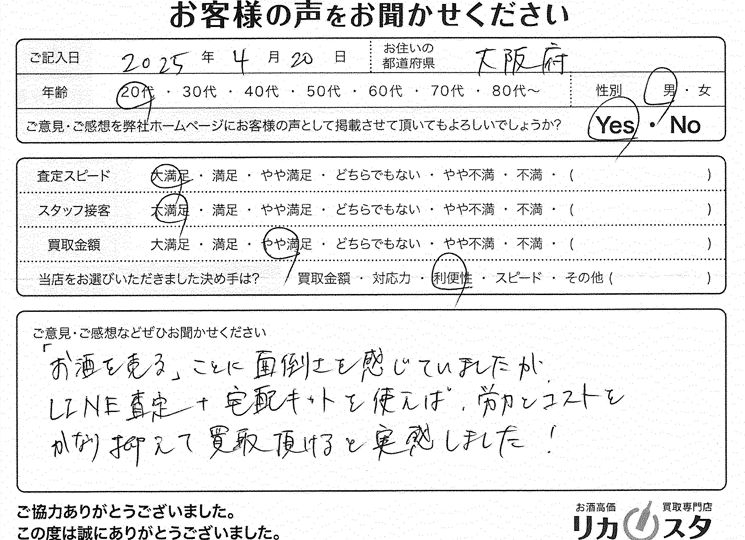 お客様の声をお聞かせください
ご記入日 2025 年 4 月 20 日 お住いの都道府県 大阪府
年齢 20代 ・ 30代 ・ 40代 ・ 50代 ・ 60代 ・ 70代 ・ 80代〜 性別 男 ・ 女
ご意見・ご感想を弊社ホームページにお客様の声として掲載させて頂いてもよろしいでしょうか? Yes ・ No
査定スピード 大満足 ・ 満足 ・ やや満足 ・ どちらでもない ・ やや不満 ・ 不満 ・ ( )
スタッフ接客 大満足 ・ 満足 ・ やや満足 ・ どちらでもない ・ やや不満 ・ 不満 ・ ( )
買取金額 大満足 ・ 満足 ・ やや満足 ・ どちらでもない ・ やや不満 ・ 不満 ・ ( )
当店をお選びいただきました決め手は? 買取金額 ・ 対応力 ・ 利便性 ・ スピード ・ その他 ( )
ご意見・ご感想などぜひお聞かせください
「お酒を売る」ことに面倒さを感じていましたが、
LINE査定+宅配キットを使えば、労力とコストを
かなり抑えて買取頂けると実感しました!
ご協力ありがとうございました。
この度は誠にありがとうございました。
お酒高価 買取専門店
リカスタ